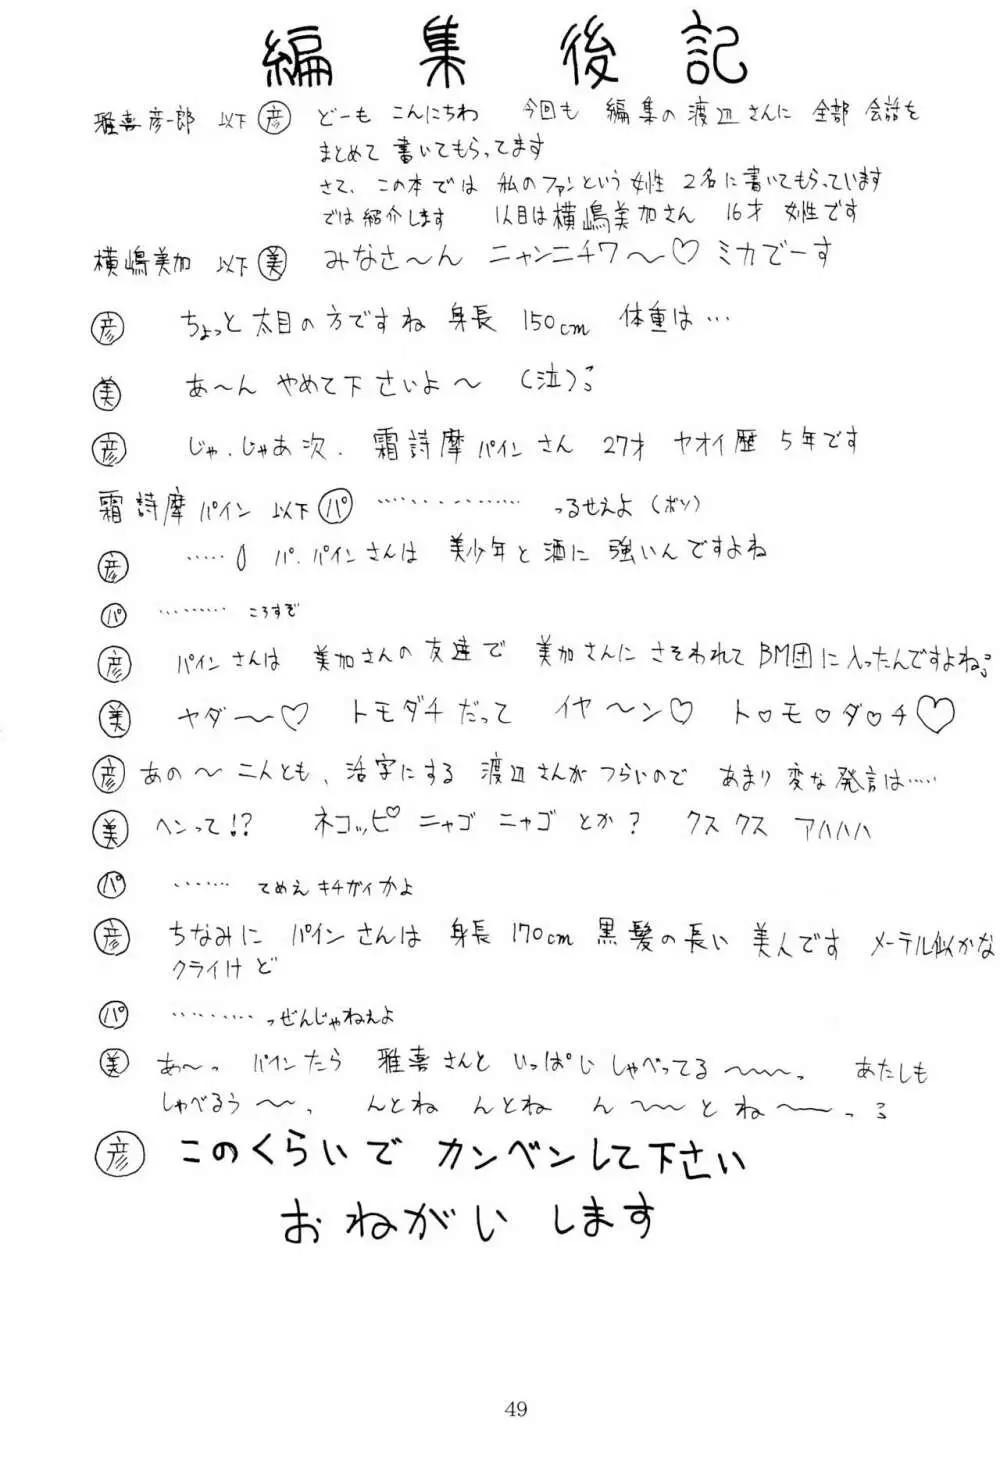 編集後記
雅喜彦一郎 以下(彦) どーも こんにちわ 今回も 編集の渡辺さんに 全部 会話を
まとめて 書いてもらってます
さて、この本では 私のファンという 女性 2名に書いてもらっています
では紹介します 1人目は横嶋美加さん 16才 女性です
横嶋美加 以下(美) みなさ〜ん ニャンニチワ〜♡ ミカでーす
(彦) ちょっと太目の方ですね 身長 150cm 体重は…
(美) あ〜ん やめて下さいよ〜 (泣)
(彦) じゃ、じゃあ次、霜詩摩パインさん 27才 ヤオイ歴 5年です
霜詩摩パイン 以下(パ) ‥‥‥‥‥‥‥ っるせえよ(ボソ)
(彦) ‥‥‥ パ、パインさんは 美少年と酒に 強いんですよね
(パ) ‥‥‥‥‥ ころすぞ
(彦) パインさんは 美加さんの友達で 美加さんに さそわれて BM団に入ったんですよね。
(美) ヤダ〜〜♡ トモダチだって イヤ〜ン♡ ト♡モ♡ダ♡チ♡
(彦) あの〜 二人とも、活字にする 渡辺さんが つらいので あまり 変な発言は……
(美) ヘンって!? ネコッピ♡ ニャゴ ニャゴ とか? クス クス アハハハ
(パ) ‥‥‥‥ てめえキチガイかよ
(彦) ちなみに パインさんは 身長170cm 黒髪の長い 美人です メーテル似かな
クライけど
(パ) ‥‥‥‥‥ っぜんじゃねえよ
(美) あ〜っ パインたら 雅喜さんと いっぱい しゃべってる〜〜〜っ あたしも
しゃべるぅ〜〜っ んとね んとね ん〜〜〜とね〜〜〜っ
(彦) このくらいで カンベンして下さい
おねがい します
49